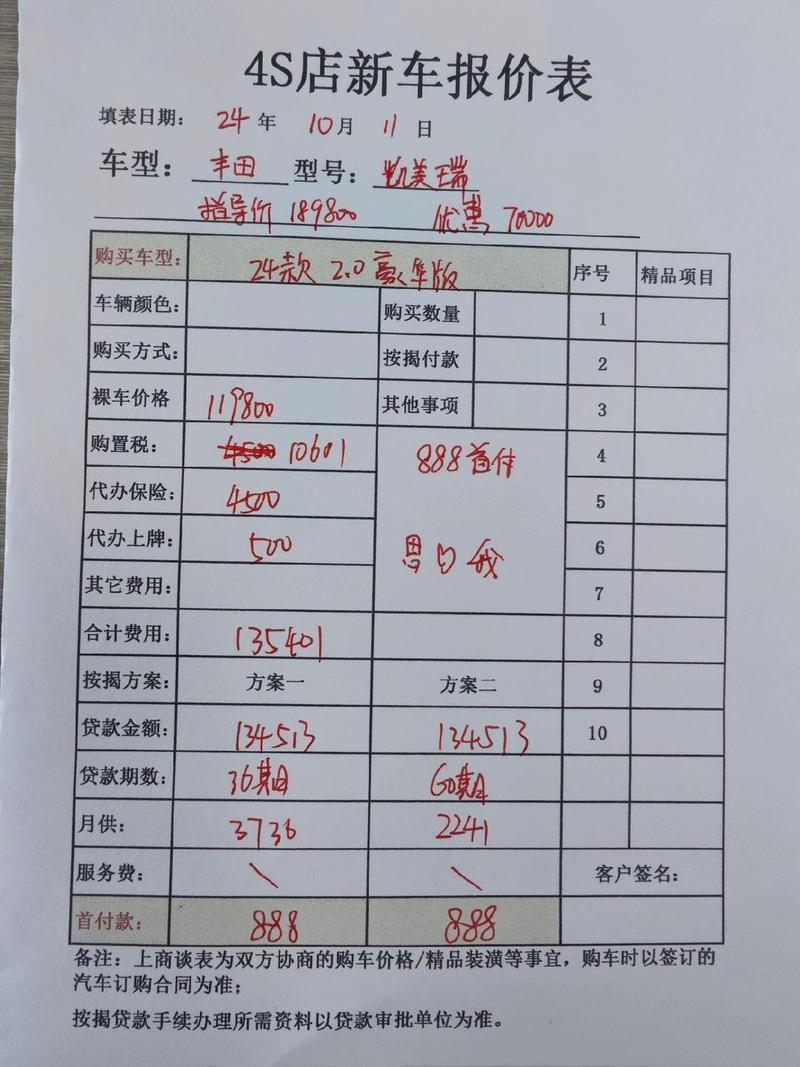 4S店新车报价表
填表日期： 24 年 10 月 11 日
车型： 丰田 型号： 凯美瑞
指导价 189800 优惠 70000
购买车型： 24款 2.0 豪华版 序号 精品项目
车辆颜色： 购买数量 1
购买方式： 按揭付款 2
裸车价格 119800 其他事项 3
购置税： 4500 10601 888首付 4
代办保险： 4500 5
代办上牌： 500 6
其它费用： 7
合计费用： 135401 8
按揭方案： 方案一 方案二 9
贷款金额： 134513 134513 10
贷款期数： 36期 60期
月供： 3736 2241
服务费： \ \ 客户签名：
首付款： 888 888
备注：上商谈表为双方协商的购车价格/精品装潢等事宜，购车时以签订的
汽车订购合同为准；
按揭贷款手续办理所需资料以贷款审批单位为准。